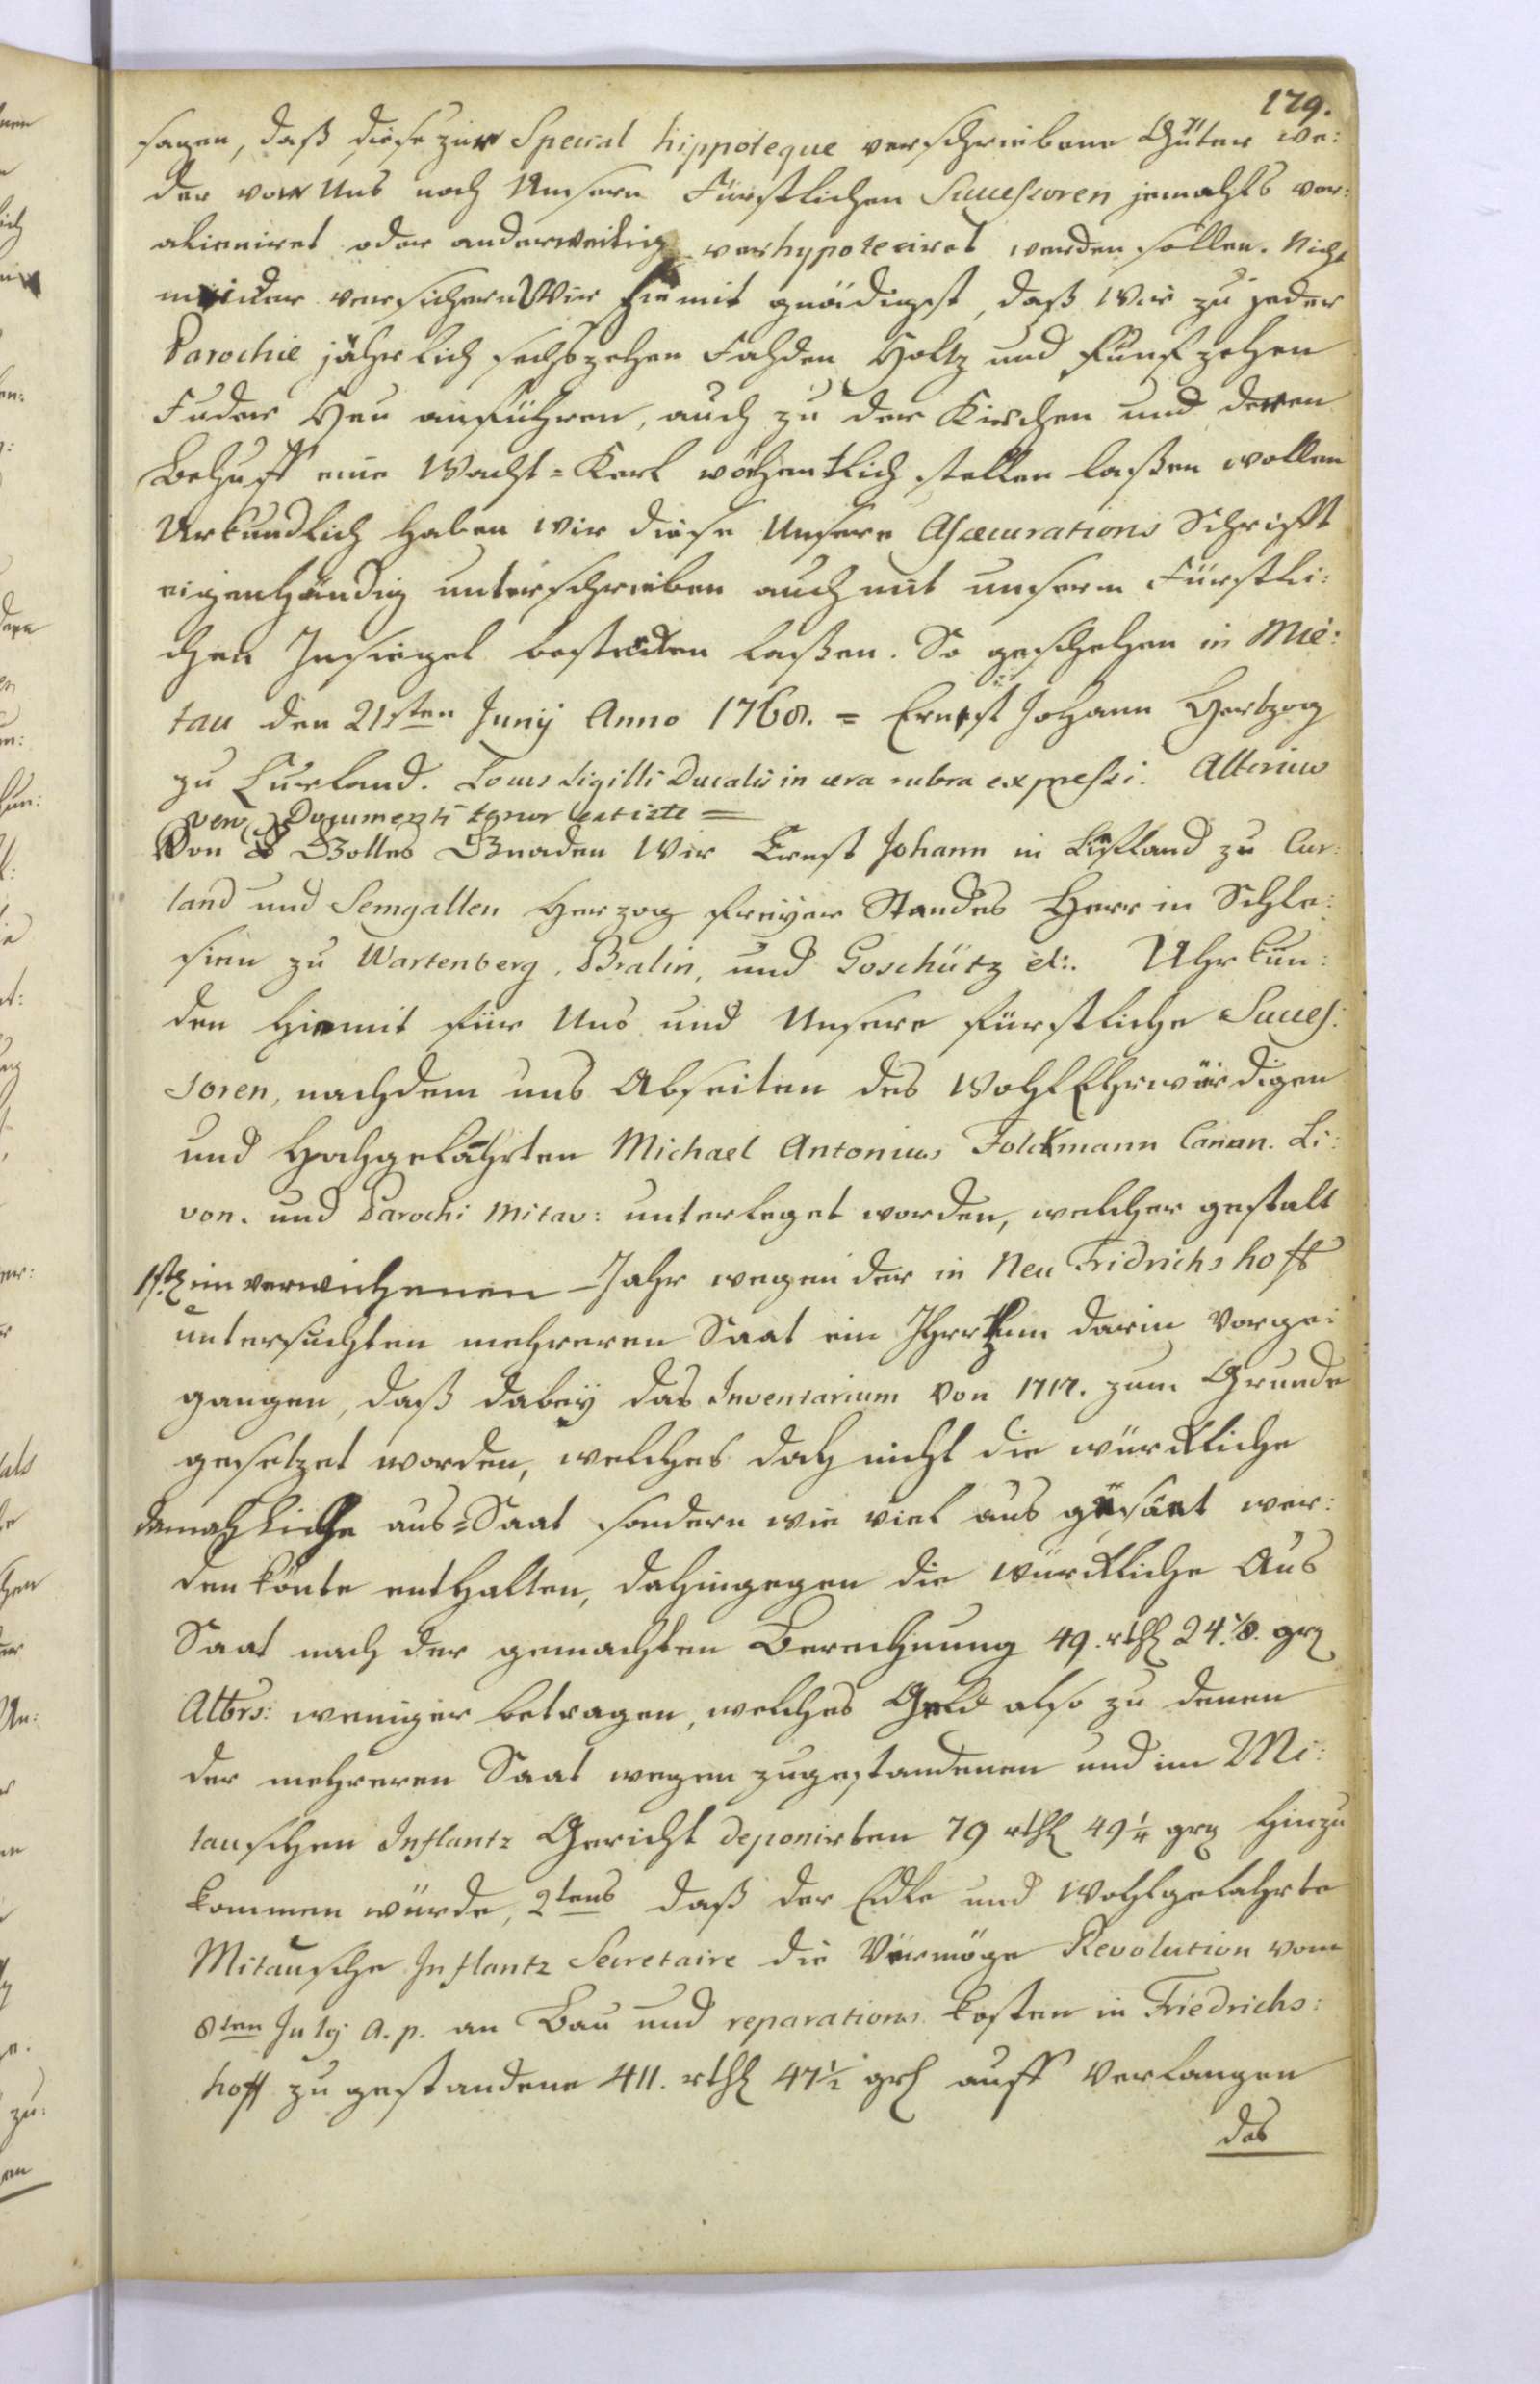 179.
sagen, daß diese zur Special hippoteque verschriebene Güter we:
der von Uns noch Unsern Fürstlichen Successoren jemahls ver:
alieniret oder anderweitig verhypoteciret werden sollen. Nicht
minder versichern Wir hiemit gnädigst, daß Wir zu jeder
Parochie jährlich sechszehen Fahden Holtz und Funfzehen
Fuder Heu anführen, auch zu der Kirchen und deren
Behuff eine Wacht=Kerl wöchentlich stellen laßen wollen
Urkundlich haben wir diese Unsere Assecurations Schrifft
eigenhändig unterschrieben auch mit unserm Fürstli:
chen Insiegel bestärken laßen. So geschehen in Mie:
tau den 21sten Junij Anno 1768. = Ernst Johann Hertzog
zu Curland. Locus Sigilli Ducalis in cera rubra expressi. Alterius
vero Documenti tenor est iste =
Von Gottes Gnaden Wir Ernst Johann in Liefland zu Cur:
land und Semgallen Herzog freyer Standes Herr in Schle:
sien zu Wartenberg, Bralin, und Goschütz etc:. Uhrkun:
den hiemit für Uns und Unsere fürstliche Succes:
soren, nachdem uns Abseiten des WohlEhrwürdigen
und Hochgelahrten Michael Antonius Folckmann Canon. Li:
von. und Parochi Mitav: unterleget worden, welcher gestalt
1stens im verwichenen Jahr wegen der in Neu Fridrichshoff
untersuchten mehreren Saat ein Ihrrthum darin Vorge:
gangen, daß dabey das Inventarium von 1717. zum Grunde
gesetzet worden, welches doch nicht die würckliche
damahliche aus=Saat sondern wie viel aus gesäet wer:
den könte enthalten, dahingegen die würckliche Aus
Saat nach der gemachten Berechnung 49. rthl 24 7/8. grz
Albrs: weniger betragen, welches Geld also zu denen
der mehreren Saat wegen zugestandenen und im Mi:
tauschen Instantz Gericht deponirten 79 rthl 49 1/4 grz hinzu
kommen würde, 2tens daß der Edle und Wohlgelahrte
Mitausche Instantz Secretaire die Vermöge Resolution vom
8ten July a. p. an Bau und reparations kosten in Friedrichs:
hoff zugestandene 411. rthl 47 1/2 grl auff Verlangen
des